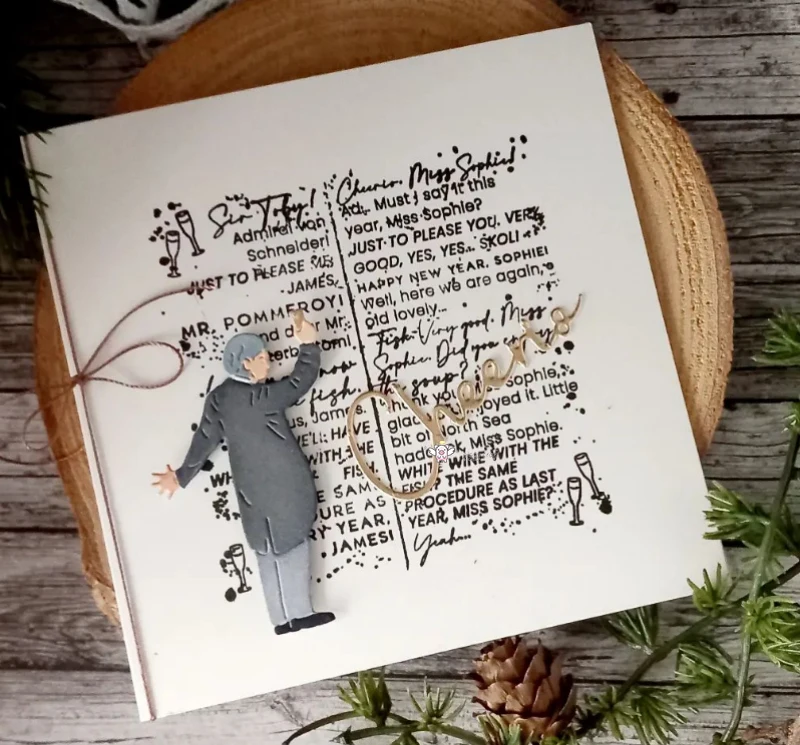 Sir Toby!
Admiral von
Schneider!
JUST TO PLEASE ME
JAMES.
MR. POMMEROY!
Mr.
fish.
us, James.
WE'LL HAVE
WITH THE
FISH.
SAME
AS
YEAR,
JAMES!
Cheerio, Miss Sophie!
Ad.. Must I say it this
year, Miss Sophie?
JUST TO PLEASE YOU. VERY
GOOD, YES, YES... SKOL!
HAPPY NEW YEAR, SOPHIE!
Well, here we are again,
old lovely...
Fish. Very good. Miss
Sophie. Did you enjoy
soup?
Sophie,
enjoyed it. Little
bit of North Sea
Miss Sophie.
WHITE WINE WITH THE
FISH? THE SAME
PROCEDURE AS LAST
YEAR, MISS SOPHIE?
Yeah...
Cheerio